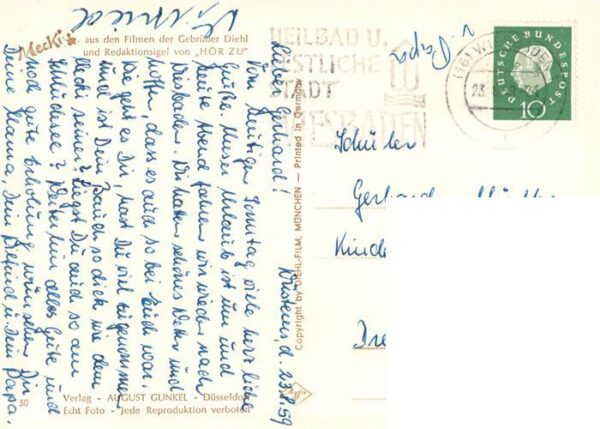 Mecki
aus den Filmen der Gebrüder Diehl
und Redaktionsigel von „HÖR ZU"
HEILBAD U.
FESTLICHE
STADT
WIESBADEN
DEUTSCHE BUNDESPOST
10
23.
u. Papa
Schüler
Gerhard
Kinde
Dre
d. 23.8.59
Lieber Gerhard!
Zum heutigen Sonntag viele herzliche
Grüße. Unser Urlaub ist um und
heute Abend fahren wir wieder nach
Wiesbaden. Wir hatten schönes Wetter und
hoffen, dass es auch so bei Euch war.
Wie geht es Dir, hast Du viel zugenommen
und ist Dein Bauch so dick wie dem
Mecki seiner? Liegst Du auch so am
Weiterhin alles Gute und
noch gute Erholung wünschen Dir
Deine Mama, Dein u. Dein Papa.
Copyright by DIEHL-FILM, MÜNCHEN — Printed in Germany
30
Verlag - AUGUST GUNKEL - Düsseldorf
Echt Foto - Jede Reproduktion verboten